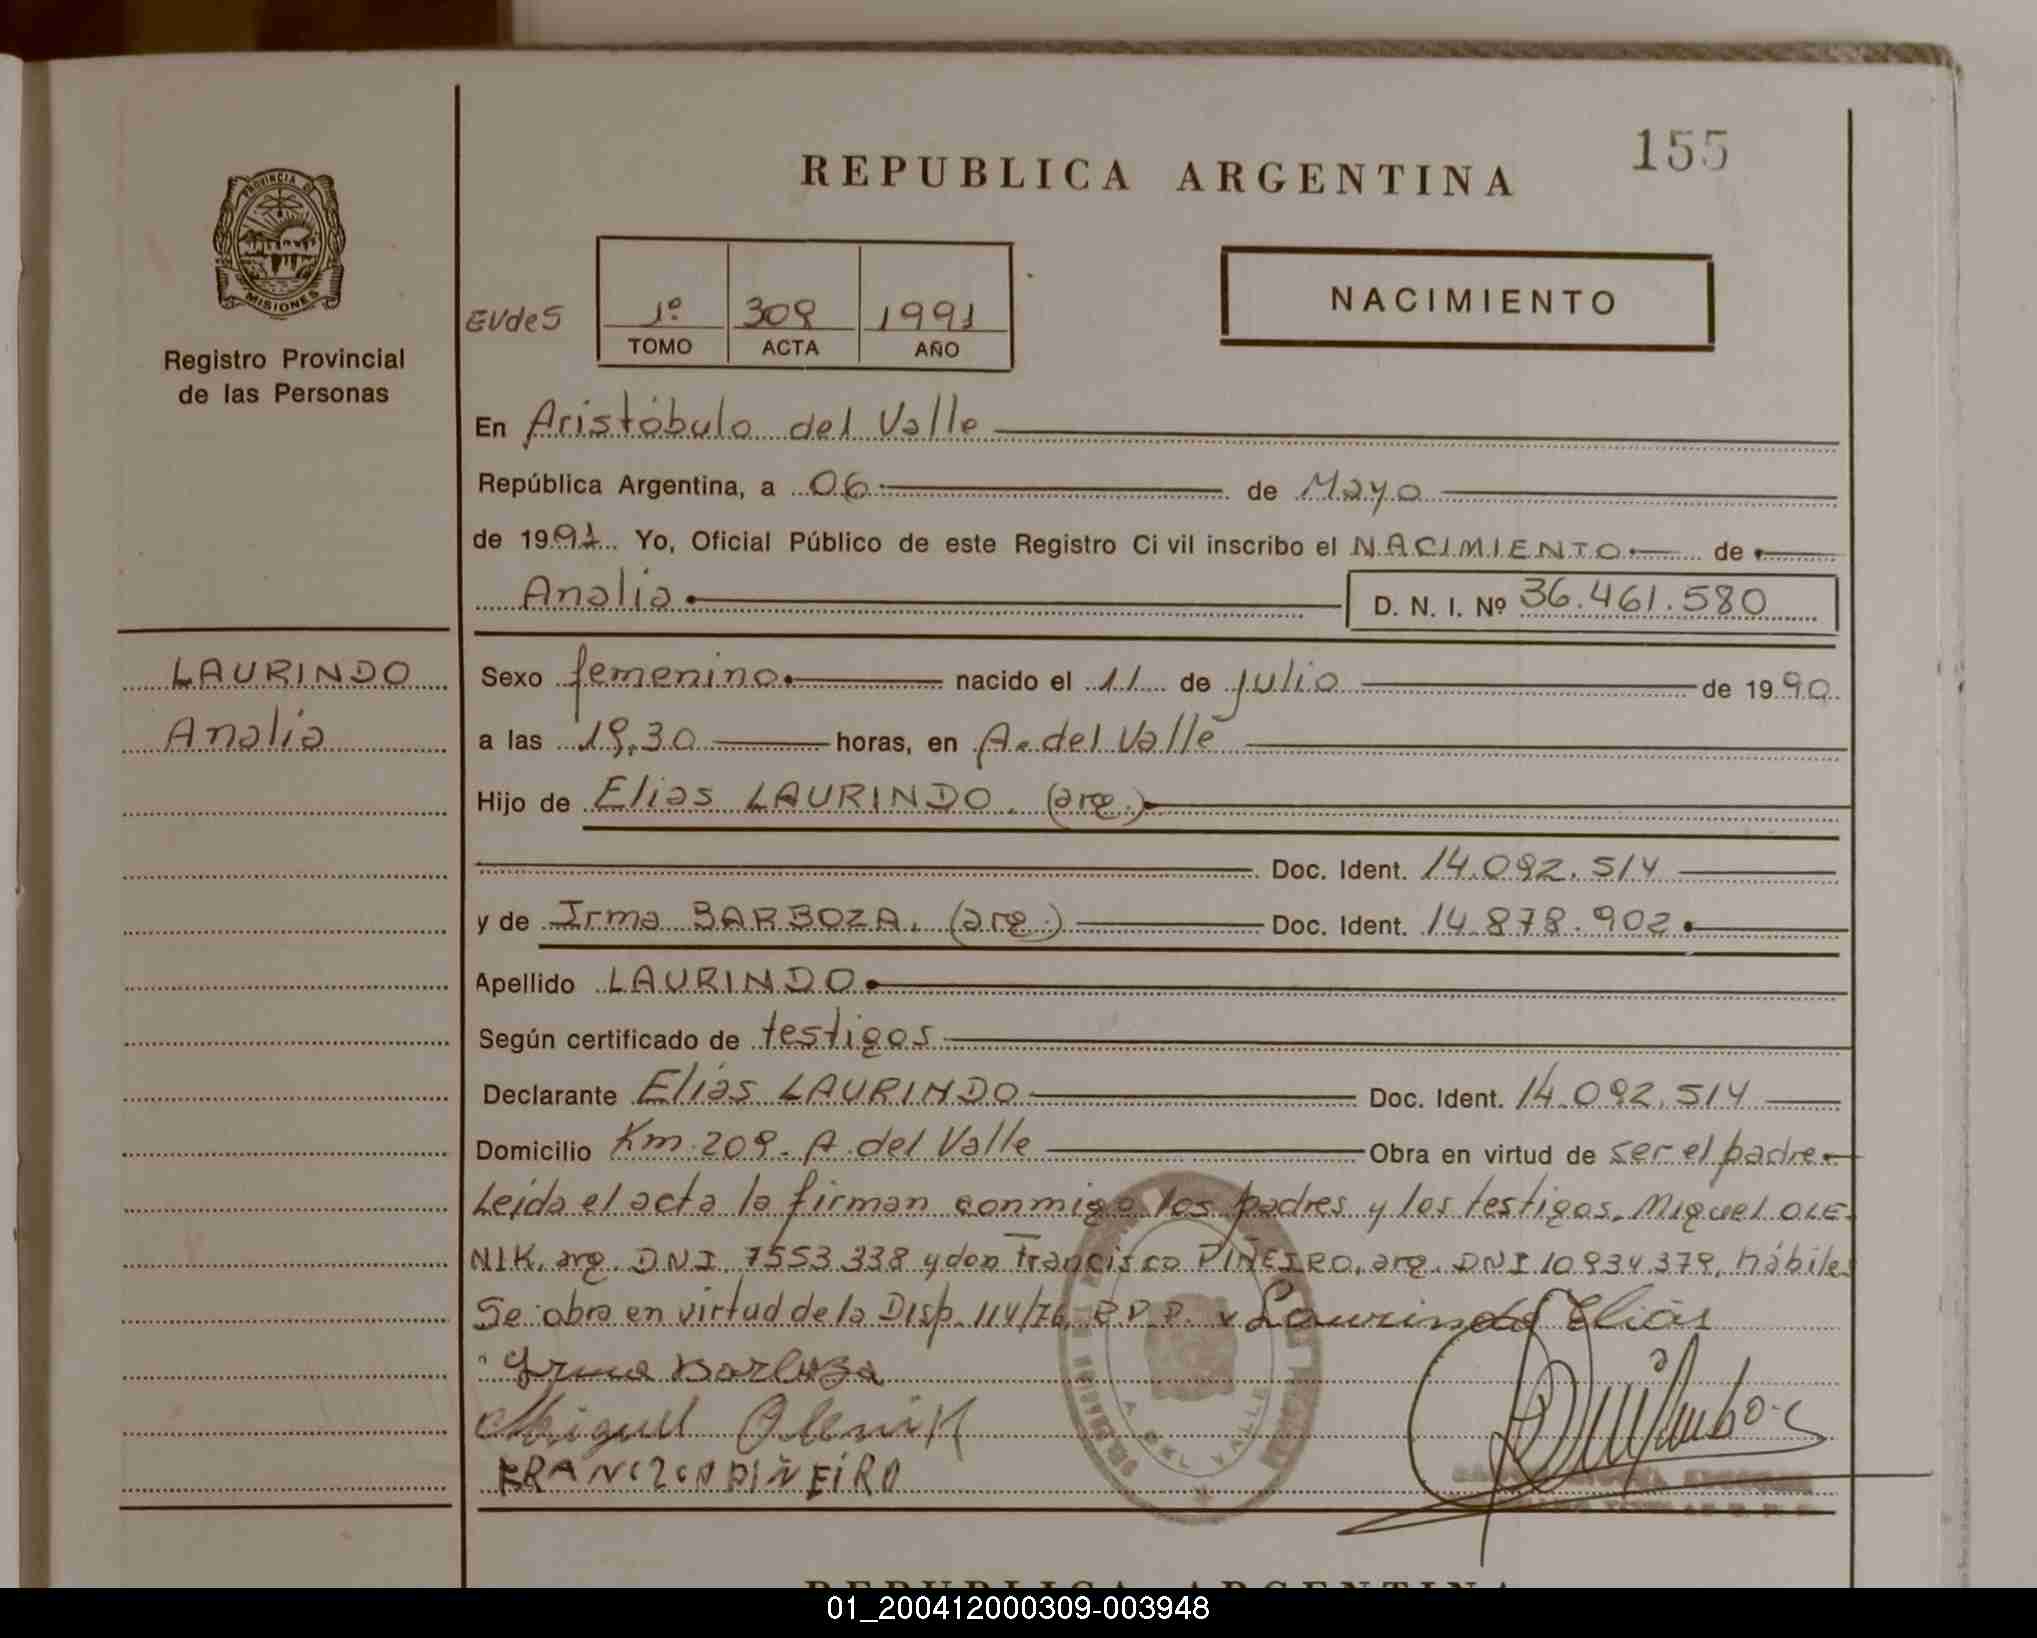 155
REPUBLICA ARGENTINA
PROVINCIA DE
MISIONES
Registro Provincial
de las Personas
EVdeS
1º 309 1991
TOMO ACTA AÑO
NACIMIENTO
En Aristóbulo del Valle
República Argentina, a 06 de Mayo
de 1991 Yo, Oficial Público de este Registro Civil inscribo el NACIMIENTO de
Analia D. N. I. Nº 36.461.580
LAURINDO
Analia
Sexo femenino nacido el 11 de julio de 1990
a las 19,30 horas, en A. del Valle
Hijo de Elias LAURINDO. (arg.)
Doc. Ident. 14.092.514
y de Irma BARBOZA. (arg.) Doc. Ident. 14.878.902
Apellido LAURINDO
Según certificado de testigos
Declarante Elias LAURINDO Doc. Ident. 14.092.514
Domicilio Km. 209. A. del Valle Obra en virtud de ser el padre
Leida el acta la firman conmigo los padres y los testigos. Miguel OLE-
NIK. arg. DNI 7553338 y don Francisco PIÑEIRO, arg. DNI 10934379, hábiles
Se obra en virtud de la Disp. 114/76 R.P.P. Laurindo Elias
Irma Barboza
Miguel Olenik
FRANCIZCO PIÑEIRO
A. DEL VALLE
REPUBLICA ARGENTINA
01_200412000309-003948